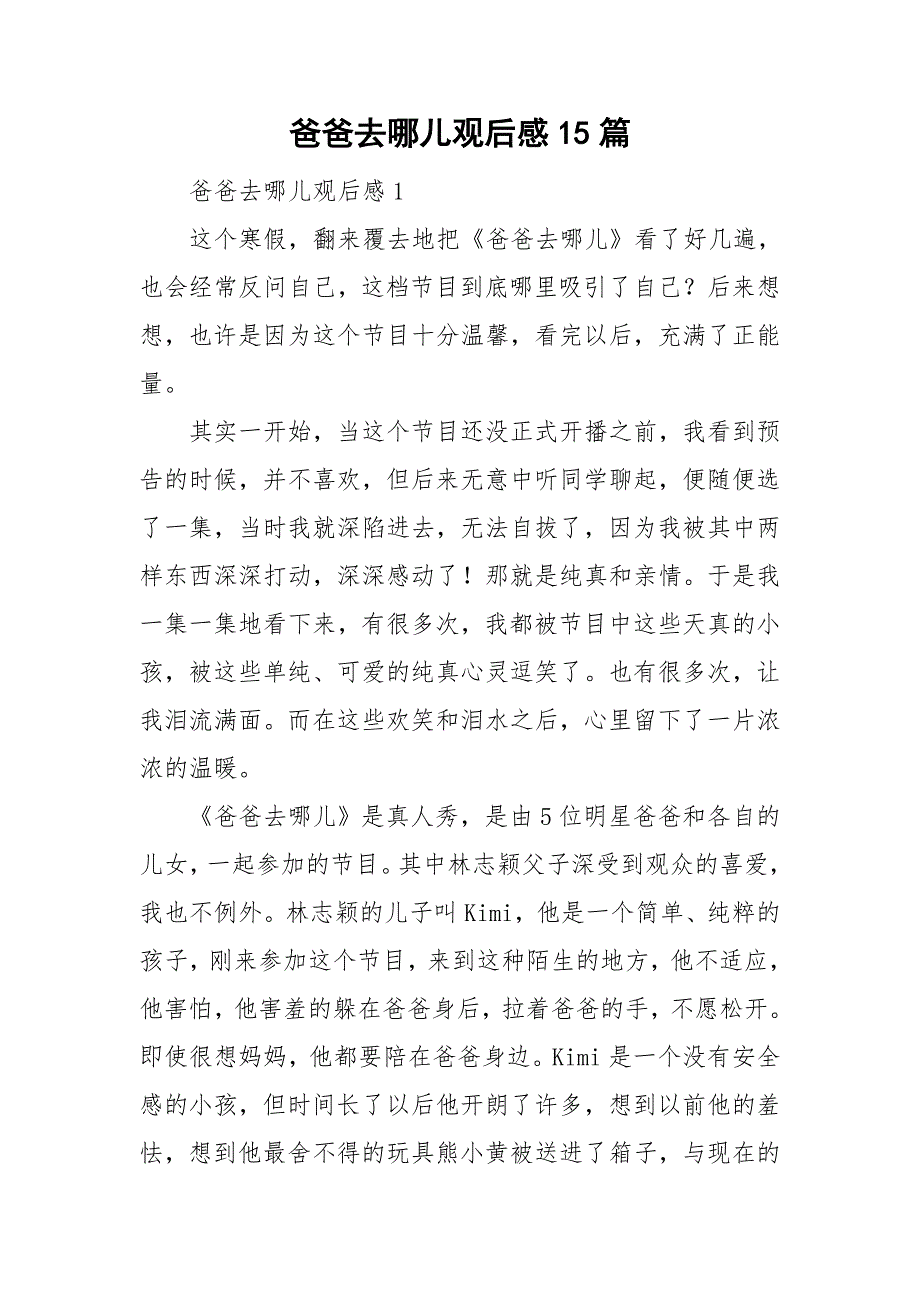 爸爸去哪儿观后感 15 篇
爸爸去哪儿观后感 1
这个寒假，翻来覆去地把《爸爸去哪儿》看了好几遍，
也会经常反问自己，这档节目到底哪里吸引了自己？后来想
想，也许是因为这个节目十分温馨，看完以后，充满了正能
量。
其实一开始，当这个节目还没正式开播之前，我看到预
告的时候，并不喜欢，但后来无意中听同学聊起，便随便选
了一集，当时我就深陷进去，无法自拔了，因为我被其中两
样东西深深打动，深深感动了！那就是纯真和亲情。于是我
一集一集地看下来，有很多次，我都被节目中这些天真的小
孩，被这些单纯、可爱的纯真心灵逗笑了。也有很多次，让
我泪流满面。而在这些欢笑和泪水之后，心里留下了一片浓
浓的温暖。
《爸爸去哪儿》是真人秀，是由 5 位明星爸爸和各自的
儿女，一起参加的节目。其中林志颖父子深受到观众的喜爱，
我也不例外。林志颖的儿子叫 Kimi，他是一个简单、纯粹的
孩子，刚来参加这个节目，来到这种陌生的地方，他不适应，
他害怕，他害羞的躲在爸爸身后，拉着爸爸的手，不愿松开。
即使很想妈妈，他都要陪在爸爸身边。Kimi 是一个没有安全
感的小孩，但时间长了以后他开朗了许多，想到以前他的羞
怯，想到他最舍不得的玩具熊小黄被送进了箱子，与现在的